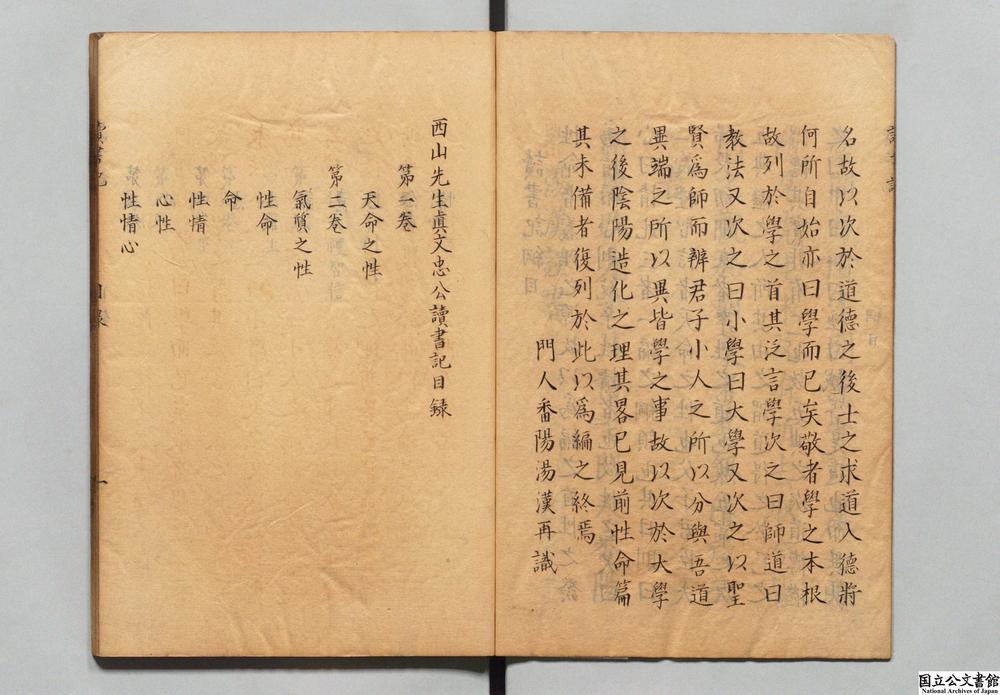 名故以次於道德之後士之求道入德將
何所自始亦曰學而已矣敬者學之本根
故列於學之首其泛言學次之曰師道曰
教法又次之曰小學曰大學又次之以聖
賢爲師而辨君子小人之所以分與吾道
異端之所以異皆學之事故以次於大學
之後陰陽造化之理其畧已見前性命篇
其未備者復列於此以爲編之終焉
門人番陽湯漢再識
西山先生眞文忠公讀書記目録
第一卷
天命之性
第二卷
氣質之性
性命
命
性情
心性
性情心
讀書記
目录
一
国立公文書館
National Archives of Japan